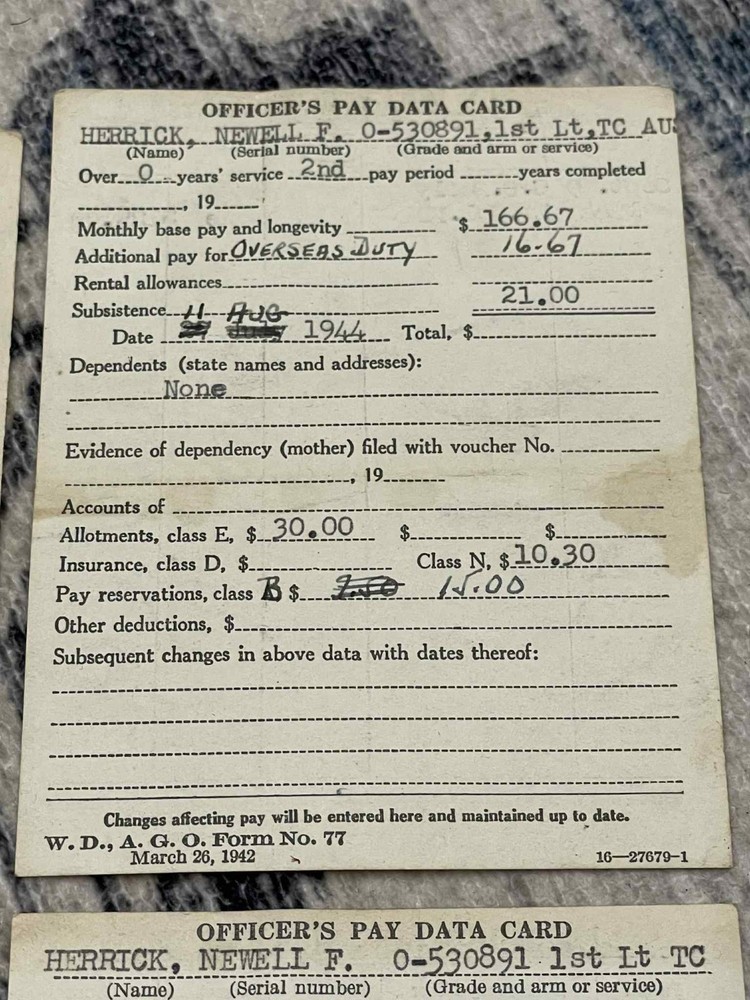 OFFICER'S PAY DATA CARD
HERRICK, NEWELL F. O-530891, 1st Lt, TC AUS
(Name) (Serial number) (Grade and arm or service)
Over 0 years' service 2nd pay period years completed
, 19
Monthly base pay and longevity $ 166.67
Additional pay for OVERSEAS DUTY 16.67
Rental allowances
Subsistence 21.00
11 AUG
Date 1944 Total, $
Dependents (state names and addresses):
None
Evidence of dependency (mother) filed with voucher No.
, 19
Accounts of
Allotments, class E, $ 30.00 $ $
Insurance, class D, $ Class N, $ 10.30
Pay reservations, class B $ 7.50 15.00
Other deductions, $
Subsequent changes in above data with dates thereof:
Changes affecting pay will be entered here and maintained up to date.
W. D., A. G. O. Form No. 77
March 26, 1942 16—27679-1
OFFICER'S PAY DATA CARD
HERRICK, NEWELL F. O-530891 1st Lt TC
(Name) (Serial number) (Grade and arm or service)